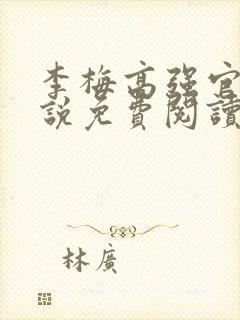 李梅高强官
說免費閱讀
林廣